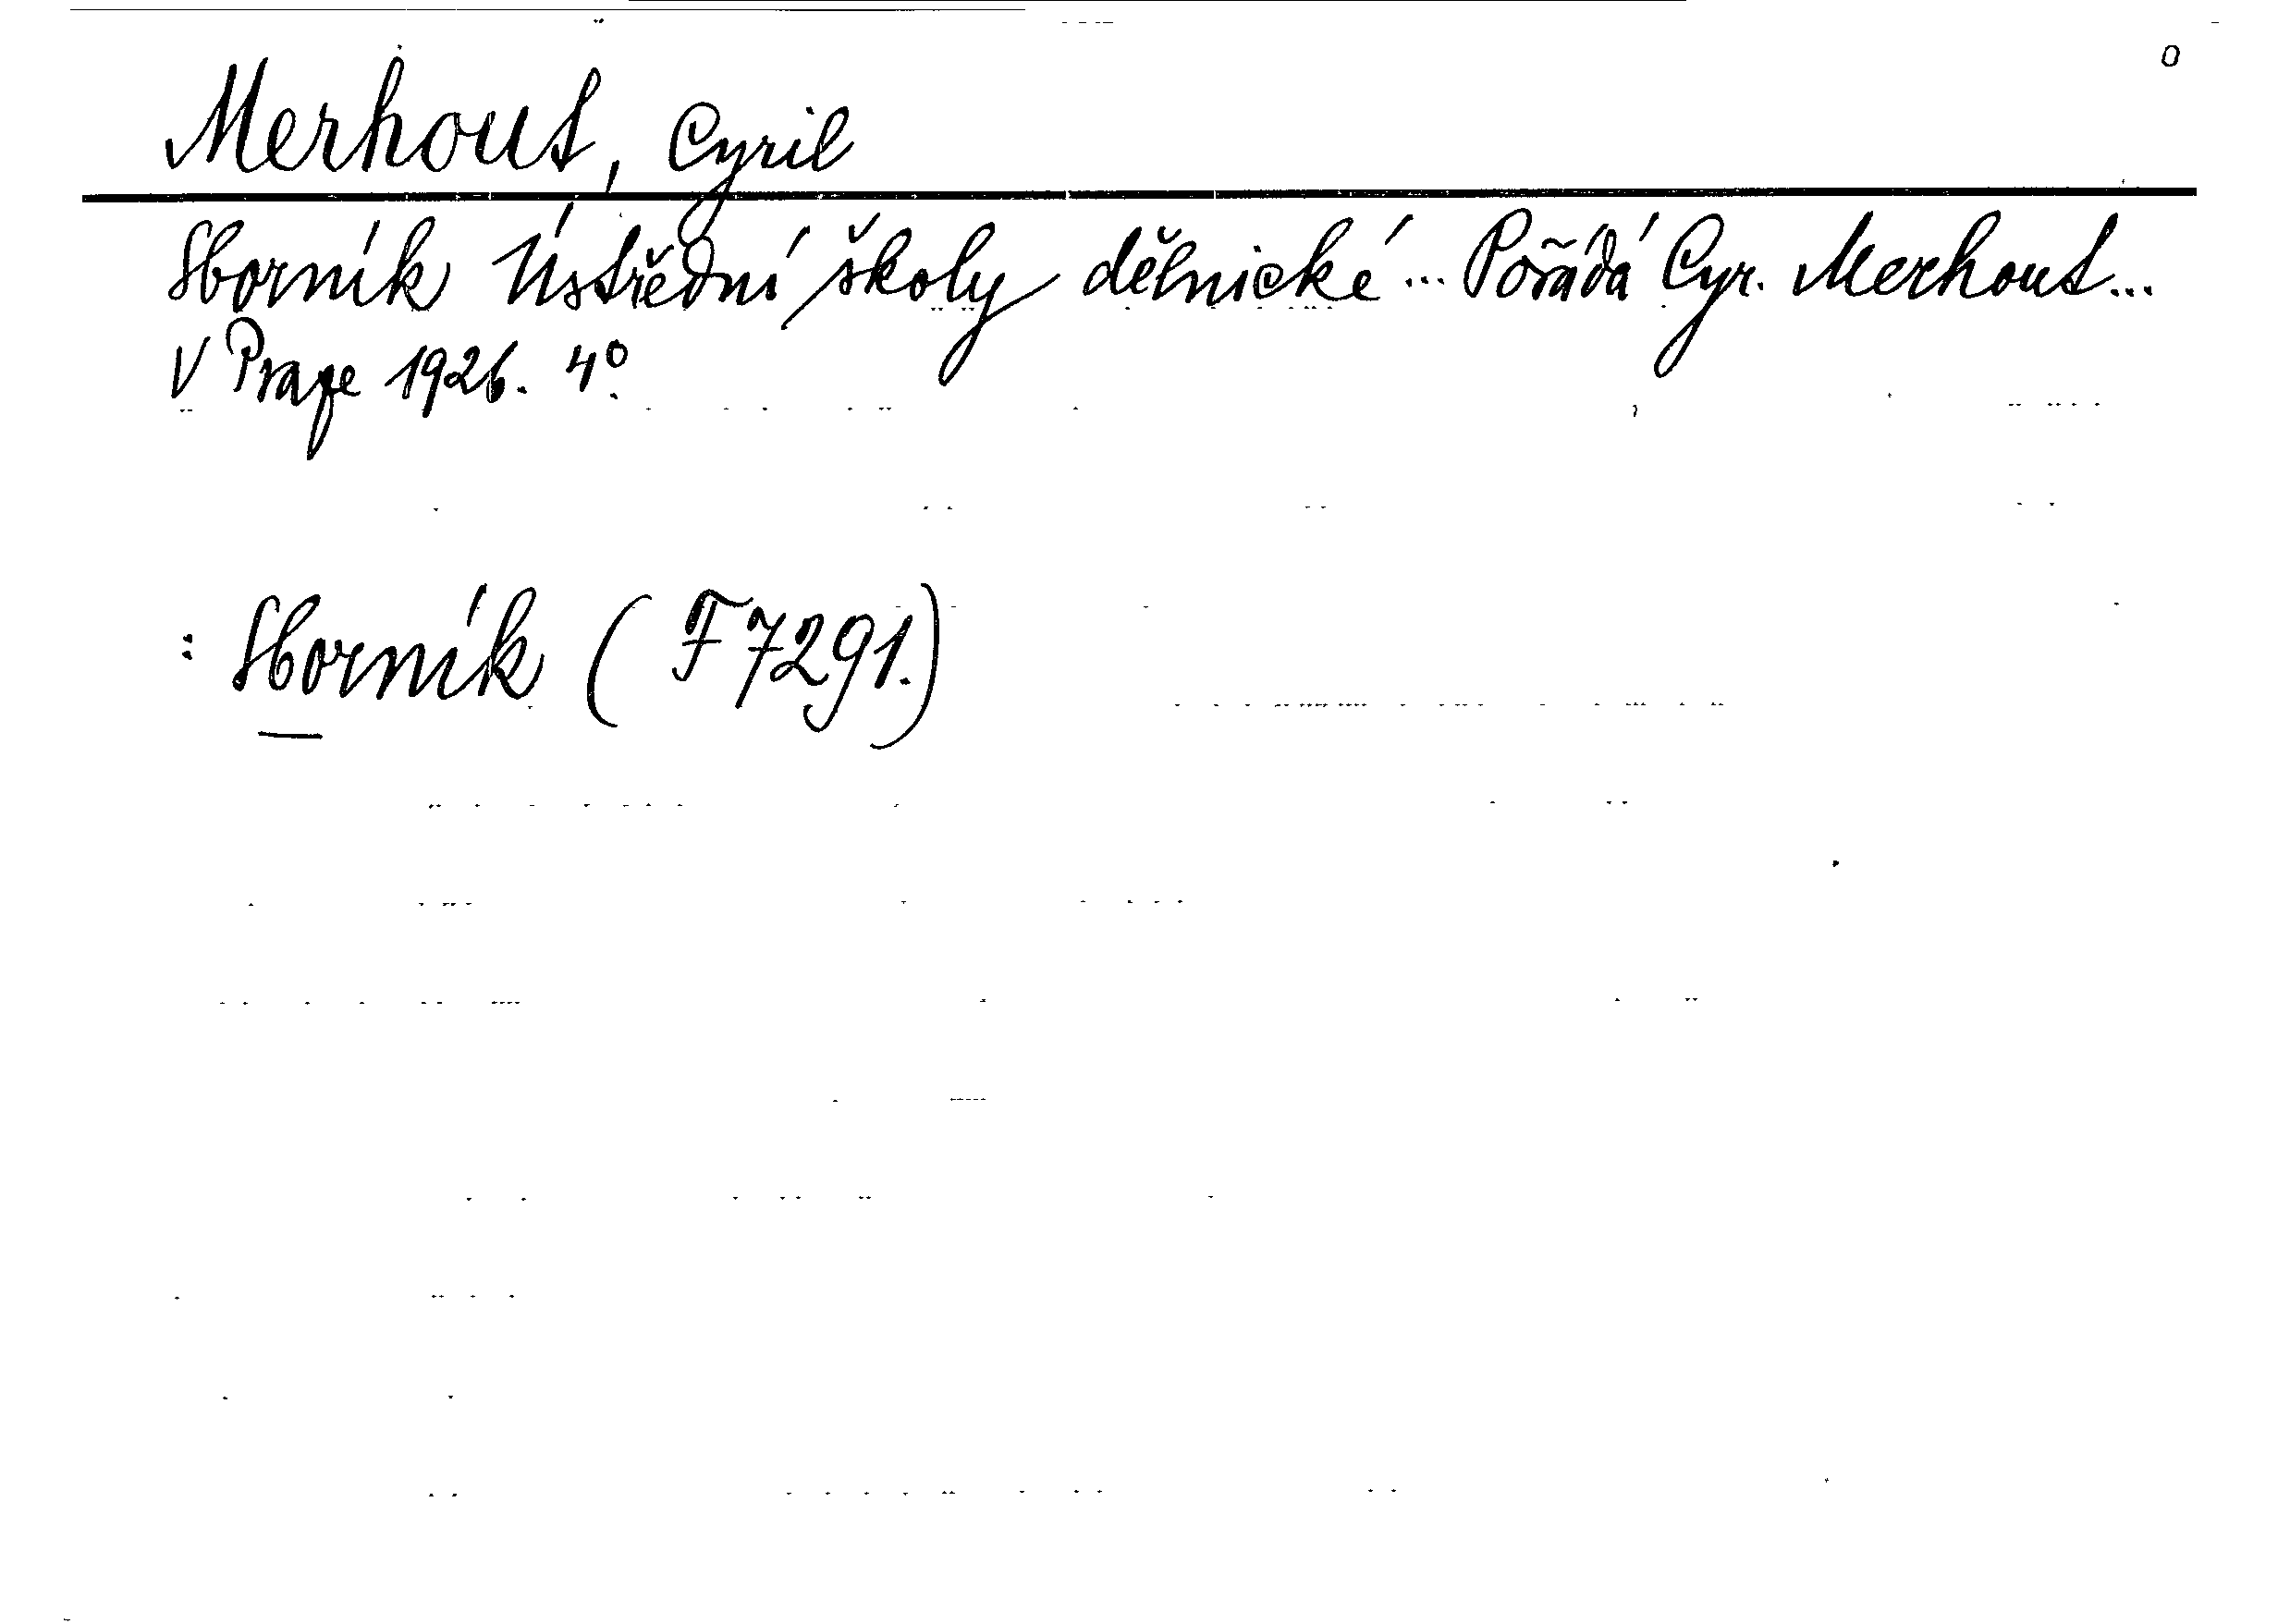 o
Merhout, Cyril
Sborník Ústřední školy dělnické ... Pořádá Cyr. Merhout...
V Praze 1926. 4º.
: Sborník ( F 7291.)